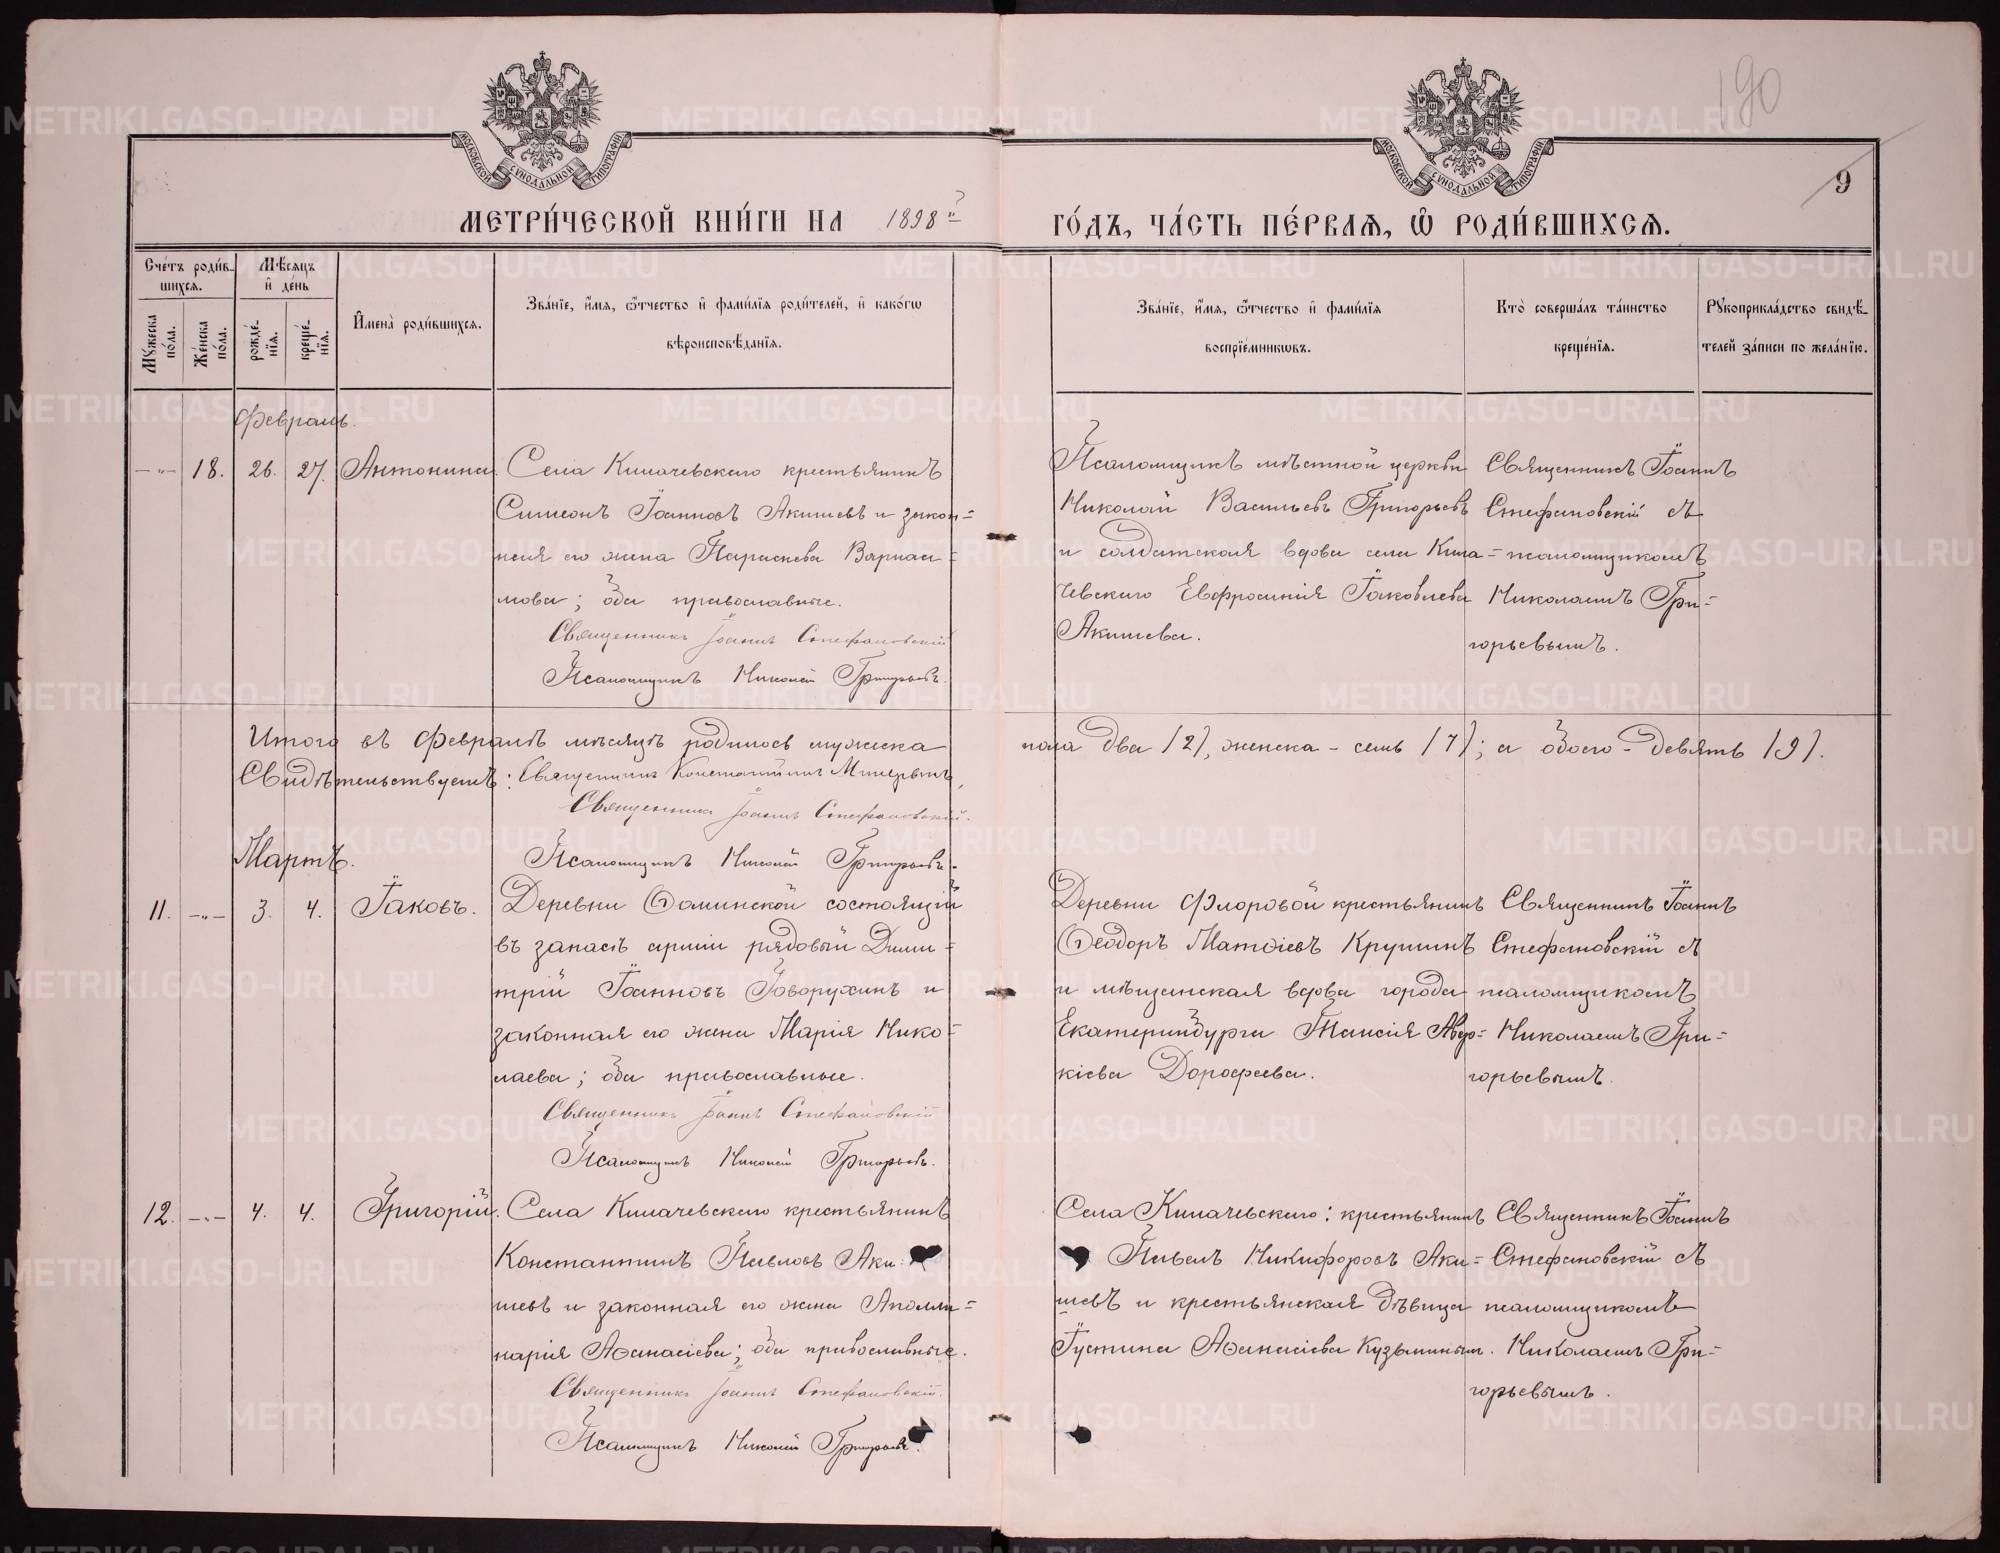 190
9
МОСКОВСКОЙ СѴНОДАЛЬНОЙ ТИПОГРАФІИ
МОСКОВСКОЙ СѴНОДАЛЬНОЙ ТИПОГРАФІИ
МЕТРИ́ЧЕСКОЙ КНИ́ГИ НА 1898 й ГО́ДЪ, ЧА́СТЬ ПЕ́РВАЯ, Ѽ РОДИ́ВШИХСЯ.
Сче́тъ роди́в-
шихся.
Мꙋжеска по́ла.
Же́нска по́ла.
Мѣ́сяцъ и де́нь
рожде́-нїя.
креще́-нїя.
И҆мена̀ роди́вшихся.
Зва́нїе, и҆́мя, ѻ҆́тчество и҆ фами́лїя роди́телей, и҆ како́гѡ
вѣроисповѣ́данїя.
Зва́нїе, и҆́мя, ѻ҆́тчество и҆ фами́лїя
воспрїе́мникѡвъ.
Кто̀ соверша́лъ та́инство
креще́нїя.
Рꙋкоприкла́дство свидѣ́-
телей за́писи по жела́нїю.
Февраль.
—"— 18. 26. 27. Антонина.
Села Килачевскаго крестьянинъ
Симеонъ Іоанновъ Акишевъ и закон=
ная его жена Параскева Варлаа=
мова; оба православные.
Священникъ Іоаннъ Стефановскій
Псаломщикъ Николай Григорьевъ.
Псаломщикъ мѣстной церкви
Николай Васильевъ Григорьевъ
и солдатская вдова села Кила=
чевскаго Евфросинія Іаковлева
Акишева.
Священникъ Іоаннъ
Стефановскій съ
псаломщикомъ
Николаемъ Гри=
горьевымъ.
Итого въ Февралѣ мѣсяцѣ родилось мужска пола два /2/, женска - семь /7/; а обоего - девять /9/.
Свидѣтельствуемъ: Священникъ Константинъ
Священникъ Іоаннъ Стефановскій.
Псаломщикъ Николай Григорьевъ.
Мартъ.
11. —"— 3. 4. Іаковъ.
Деревни Ѳоминской состоящій
въ запасѣ арміи рядовый Дими=
трій Іоанновъ Говорухинъ и
законная его жена Марія Нико=
лаева; оба православные.
Священникъ Іоаннъ Стефановскій
Псаломщикъ Николай Григорьевъ.
Деревни Флоровой крестьянинъ
Ѳеодоръ Матѳіевъ Крушинъ
и мѣщанская вдова города
Екатеринбурга Таисія Авер=
кіева Дорофеева.
Священникъ Іоаннъ
Стефановскій съ
псаломщикомъ
Николаемъ Гри=
горьевымъ.
12. —"— 4. 4. Григорій.
Села Килачевскаго крестьянинъ
Константинъ Павловъ Аки=
шевъ и законная его жена Аполли=
нарія Аѳанасіева; оба православные.
Священникъ Іоаннъ Стефановскій.
Псаломщикъ Николай Григорьевъ.
Села Килачевскаго: крестьянинъ
Павелъ Никифоровъ Аки=
шевъ и крестьянская дѣвица
Іустина Аѳанасіева Кузьминыхъ.
Священникъ Іоаннъ
Стефановскій съ
псаломщикомъ
Николаемъ Гри=
горьевымъ.
METRIKI.GASO-URAL.RU